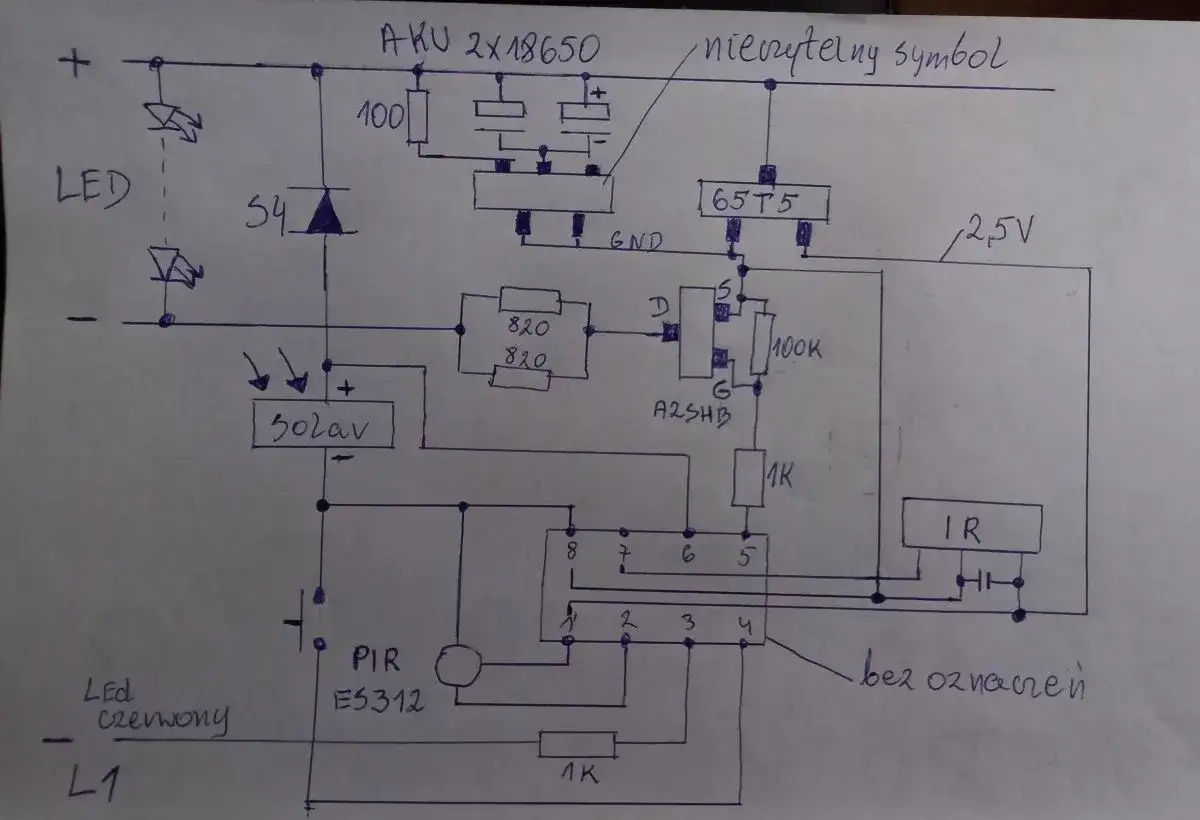 AKU 2x18650
nieczytelny symbol
+
100
+
-
LED
S4
65T5
2,5V
GND
-
820
820
D
S
G
100K
A2SHB
+
solar
-
1K
IR
8 7 6 5
1 2 3 4
PIR
ES312
bez oznaczeń
Led
czerwony
-
L1
1K